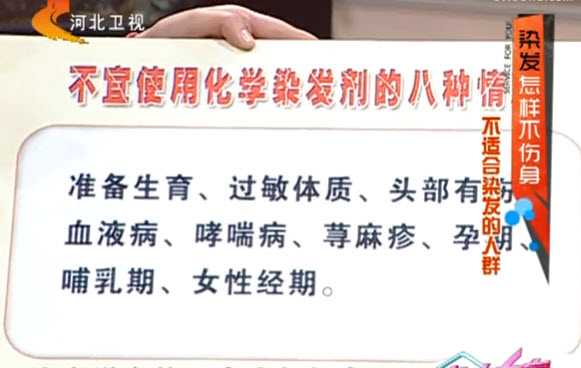 河北卫视
不宜使用化学染发剂的八种情
准备生育、过敏体质、头部有伤
血液病、哮喘病、荨麻疹、孕期、
哺乳期、女性经期。
染发怎样不伤身
SERVICE FOR YOU
不适合染发的人群